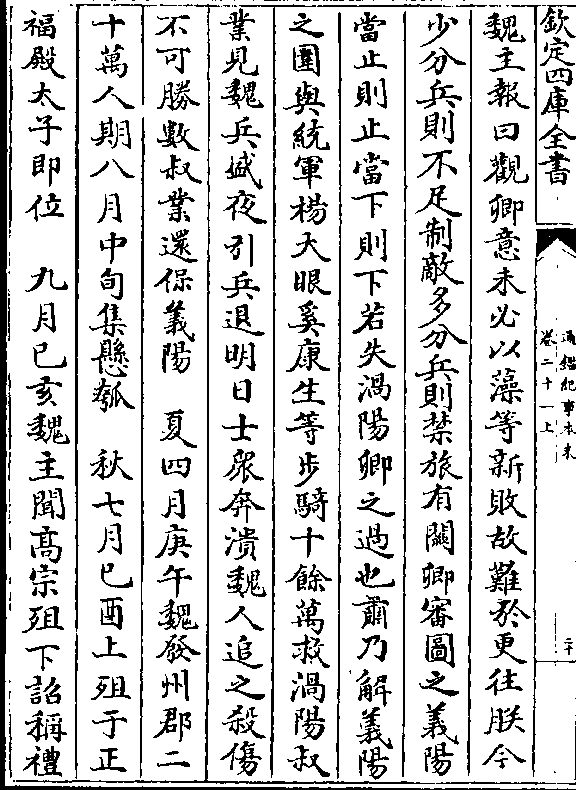 欽定四庫全書
通鑑紀事本末
卷二十一上
二十
魏主報曰觀卿意未必以藻等新敗故難於更往朕今
少分兵則不足制敵多分兵則禁旅有闕卿審圖之義陽
當止則止當下則下若失渦陽卿之過也肅乃解義陽
之圍與統軍楊大眼奚康生等步騎十餘萬救渦陽叔
業見魏兵盛夜引兵退明日士衆奔潰魏人追之殺傷
不可勝數叔業還保義陽　夏四月庚午魏發州郡二
十萬人期八月中旬集懸瓠　秋七月己酉上殂于正
福殿太子即位　九月己亥魏主聞高宗殂下詔稱禮